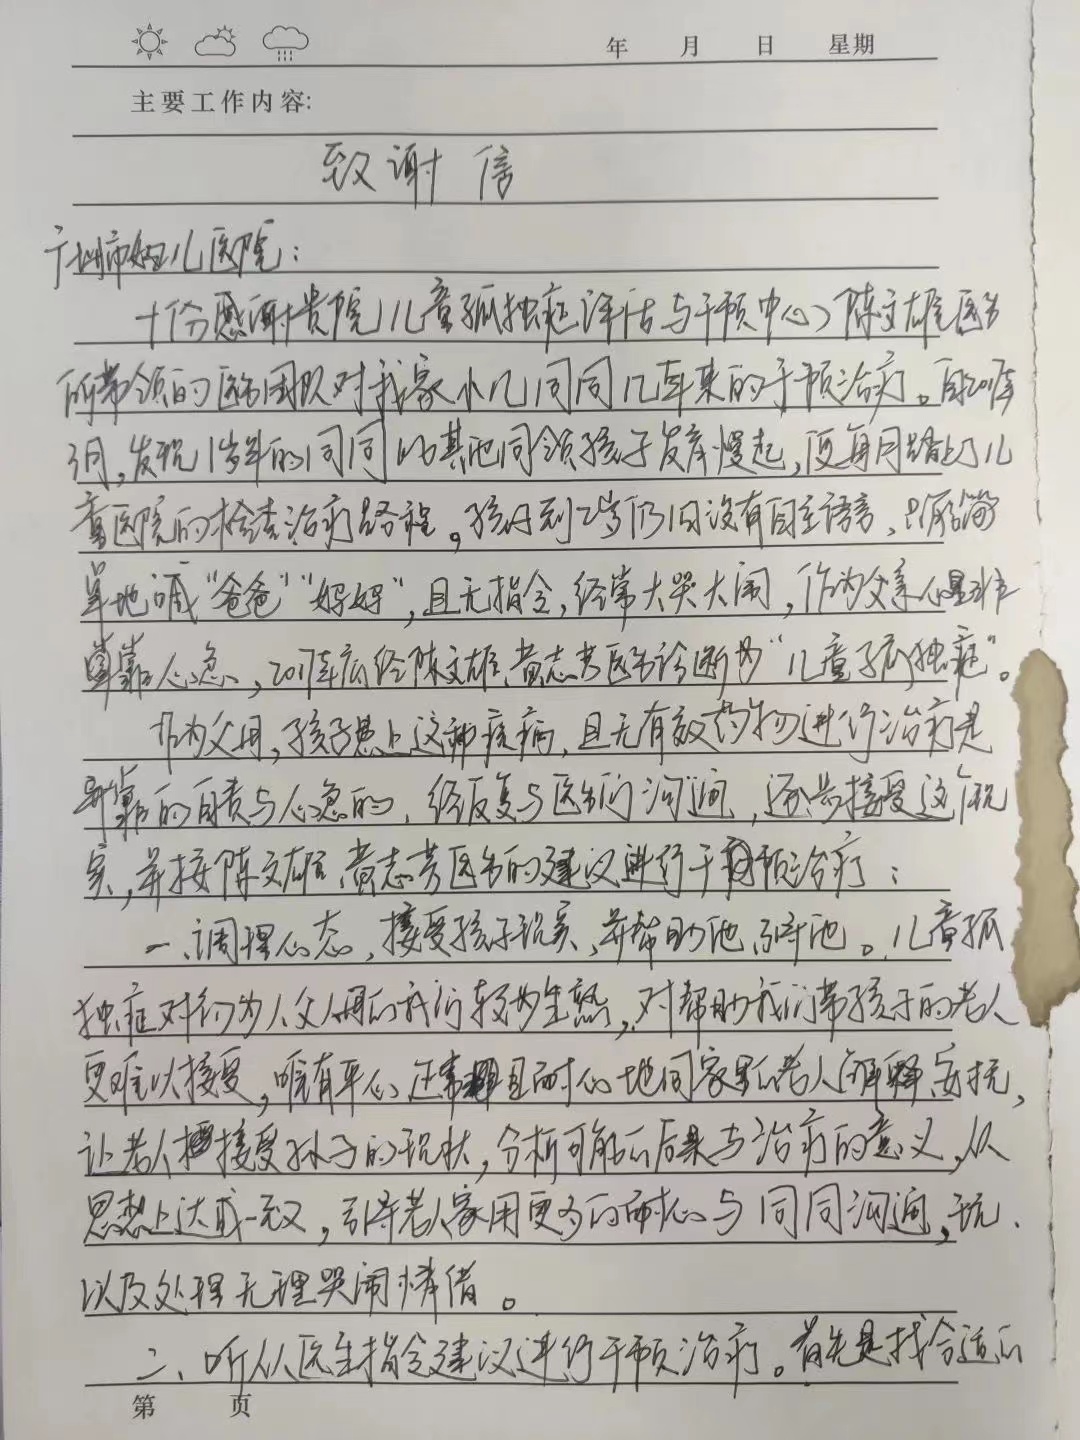 年 月 日 星期
主要工作内容:
致谢信
广州市妇儿医院：
十份感谢贵院（儿童孤独症评估与干预中心）陈文雄医生
所带领的医生团队对我家小儿同同几年来的干预治疗。自2017年
3月，发现1岁半的同同比其他同龄孩子发育慢起，便每月踏上了儿
童医院的检查治疗路程。孩子到2岁仍旧没有自主语言、只有简
单地喊“爸爸”“妈妈”，且无指令，经常大哭大闹，作为父亲心里非
常着心急，2017年底经陈文雄、黄志芳医生诊断为“儿童孤独症”。
作为父母，孩子患上这种疾病，且无有效药物进行治疗是
非常的自责与心急的，经反复与医生们沟通，逐步接受这个现
实，并按陈文雄、黄志芳医生的建议进行干预治疗：
一、调理心态，接受孩子现实，并帮助他、引导他。儿童孤
独症对初为人父人母的我们较为生熟，对帮助我们带孩子的老人
更难以接受，唯有平心正常且耐心地同家里的老人解释安抚，
让老人接受孙子的现状，分析可能的后果与治疗的意义，从
思想上达成一致，引导老人家用更多的耐心与同同沟通，玩、
以及处理无理哭闹情借。
二、听从医生指令建议进行干预治疗。首先是找合适的
第 页